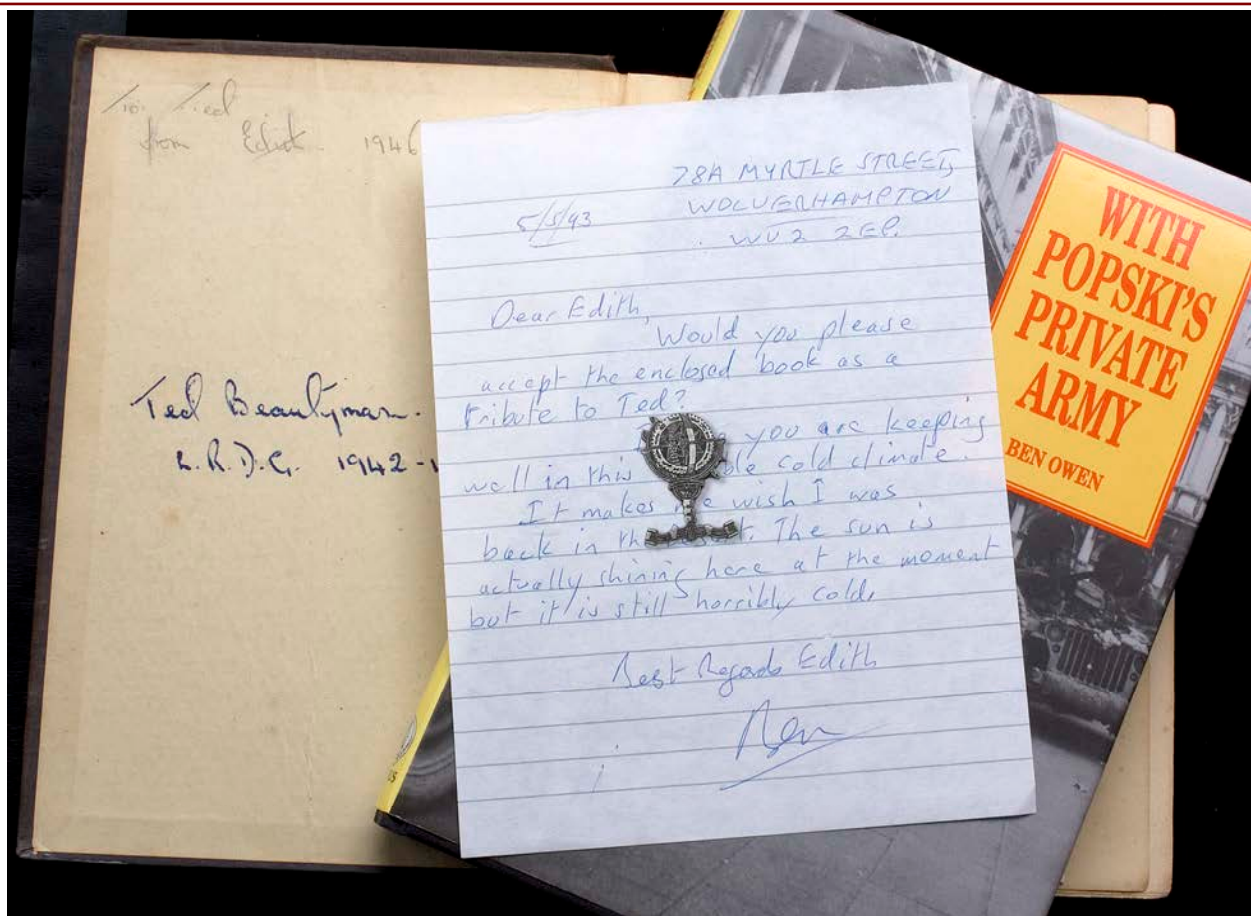 To: Ted
from Edith 1946
Ted Beautyman.
L.R.D.G. 1942-
78A MYRTLE STREET,
WOLVERHAMPTON
WV2 2EP.
5/5/93
Dear Edith,
Would you please
accept the enclosed book as a
tribute to Ted?
you are keeping
well in this cold climate.
It makes me wish I was
back in the The sun is
actually shining here at the moment
but it is still horribly cold.
Best Regards Edith
Ben
WITH
POPSKI'S
PRIVATE
ARMY
BEN OWEN